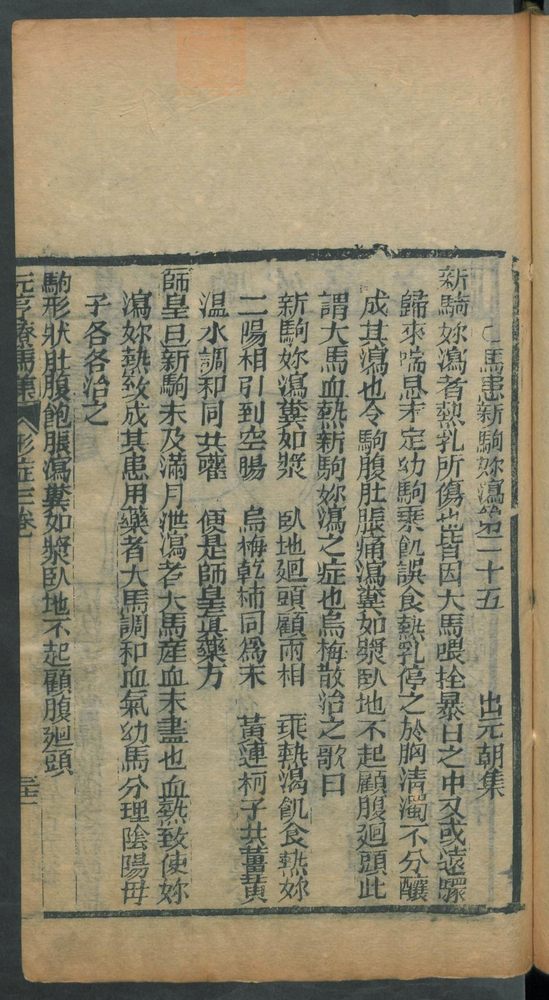 ○馬患新駒妳瀉第二十五 出元朝集
新駒妳瀉者熱乳所傷也皆因大馬喂拴暴日之中又或遠驟
歸來喘息未定幼駒乘飢誤食熱乳停之於胸清濁不分釀
成其瀉也令駒腹肚脹痛瀉糞如漿臥地不起顧腹廻頭此
謂大馬血熱新駒妳瀉之症也烏梅散治之歌曰
新駒妳瀉糞如漿 臥地廻頭顧兩相 乖熱渴飢食熱妳
二陽相引到空腸 烏梅乾柿同爲末 黃連柯子共薑黃
温水調和同共嚾 便是師皇真藥方
師皇曰新駒未及滿月泄瀉者大馬産血未盡也血熱致使妳
瀉妳熱致成其患用藥者大馬調和血氣幼馬分理陰陽毋
子各各治之
駒形狀肚腹飽脹瀉糞如漿臥地不起顧腹廻頭
元亨療馬集 形症三卷